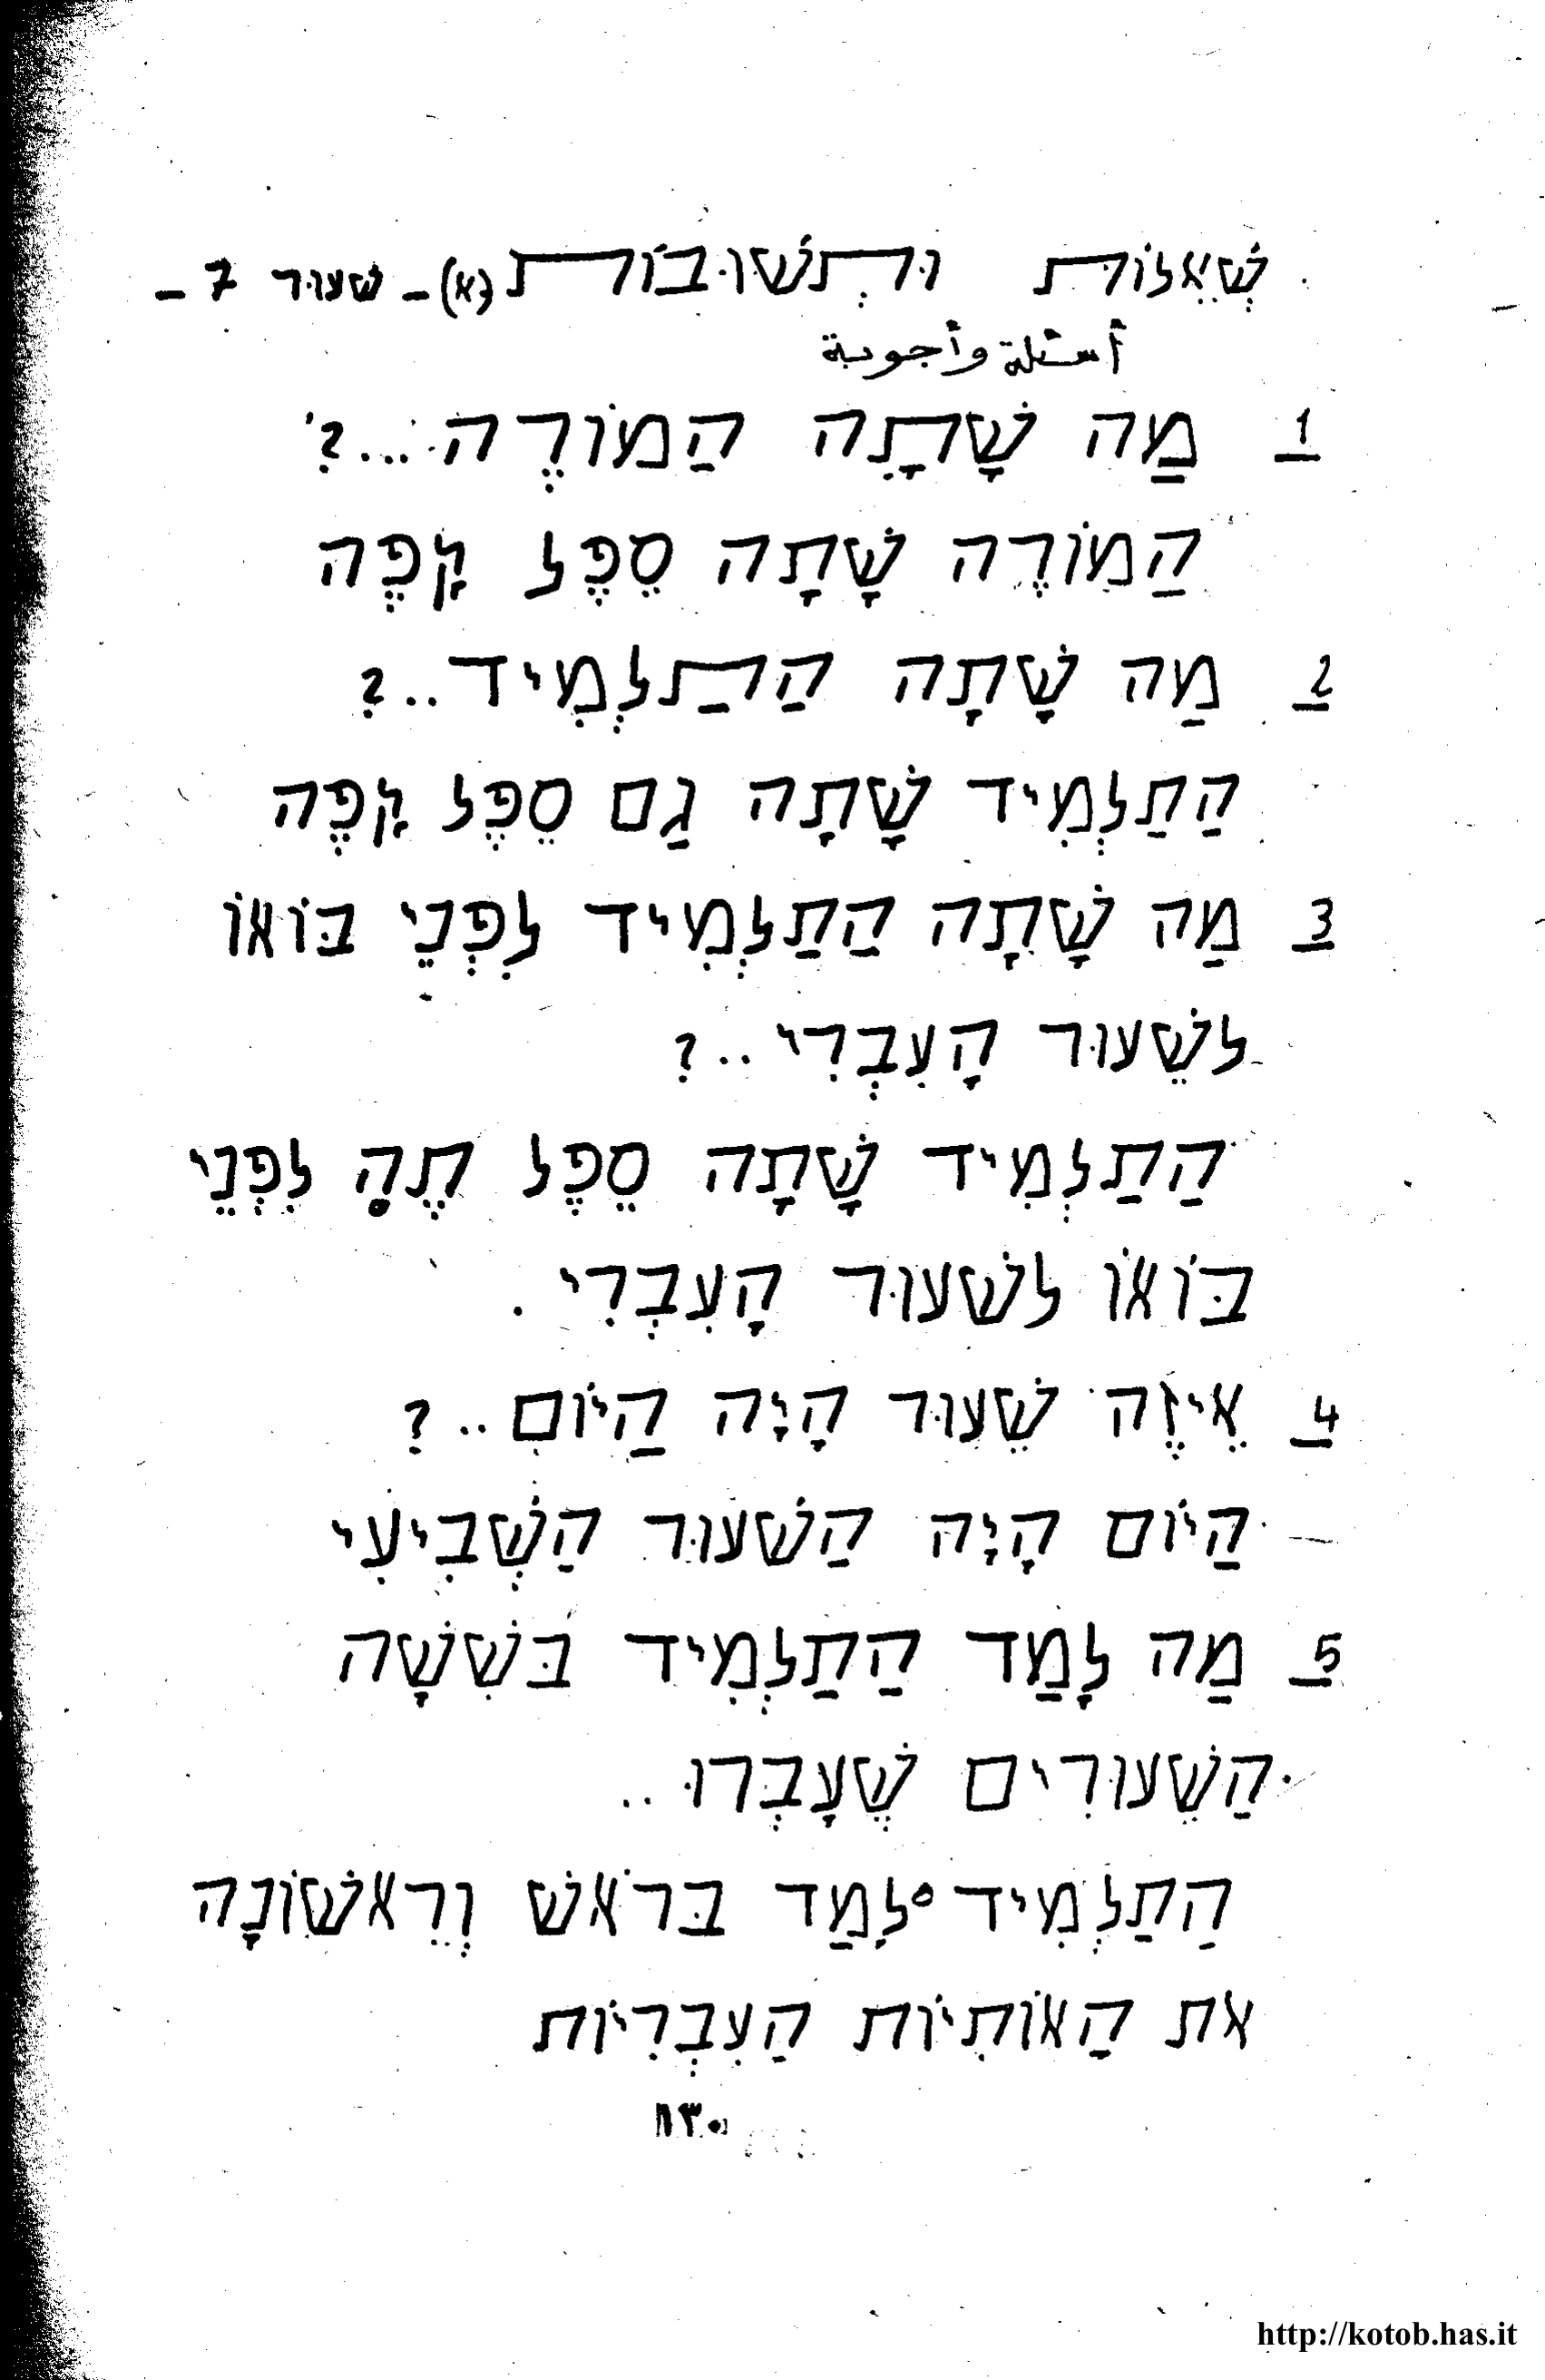 שְׁאֵלוֹת וּתְשׁוּבוֹת (א) – שעוּר 7 –
أسئلة وأجوبة
1 מַה שָׁתָה הַמוֹרֶה...؟
הַמוֹרֶה שָׁתָה סֵפֶל קָפֶה
2 מַה שָׁתָה הַתַלְמִיד..؟
הַתַלְמִיד שָׁתָה גַם סֵפֶל קָפֶה
3 מַה שָׁתָה הַתַלְמִיד לִפְנֵי בּוֹאוֹ
לשֵׁעוּר הָעִבְרִי..؟
הַתַלְמִיד שָׁתָה סֵפֶל תֶה לִפְנֵי
בּוֹאוֹ לשׁעוּר הָעִבְרִי.
4 אֵיזֶה שֵׁעוּר הָיָה הַיוֹם..؟
הַיוֹם הָיָה הַשׁעוּר הַשְׁבִיעִי
5 מַה לָמַד הַתַלְמִיד בּשִׁשָׁה
הַשֵׁעוּרִים שֶׁעָבְרוּ..
הַתַלְמִיד לָמַד בּרֹאשׁ וְרֵאשׁוֹנָה
את הַאוֹתִיוֹת הַעִבְרִיוֹת
١٣٠
http://kotob.has.it